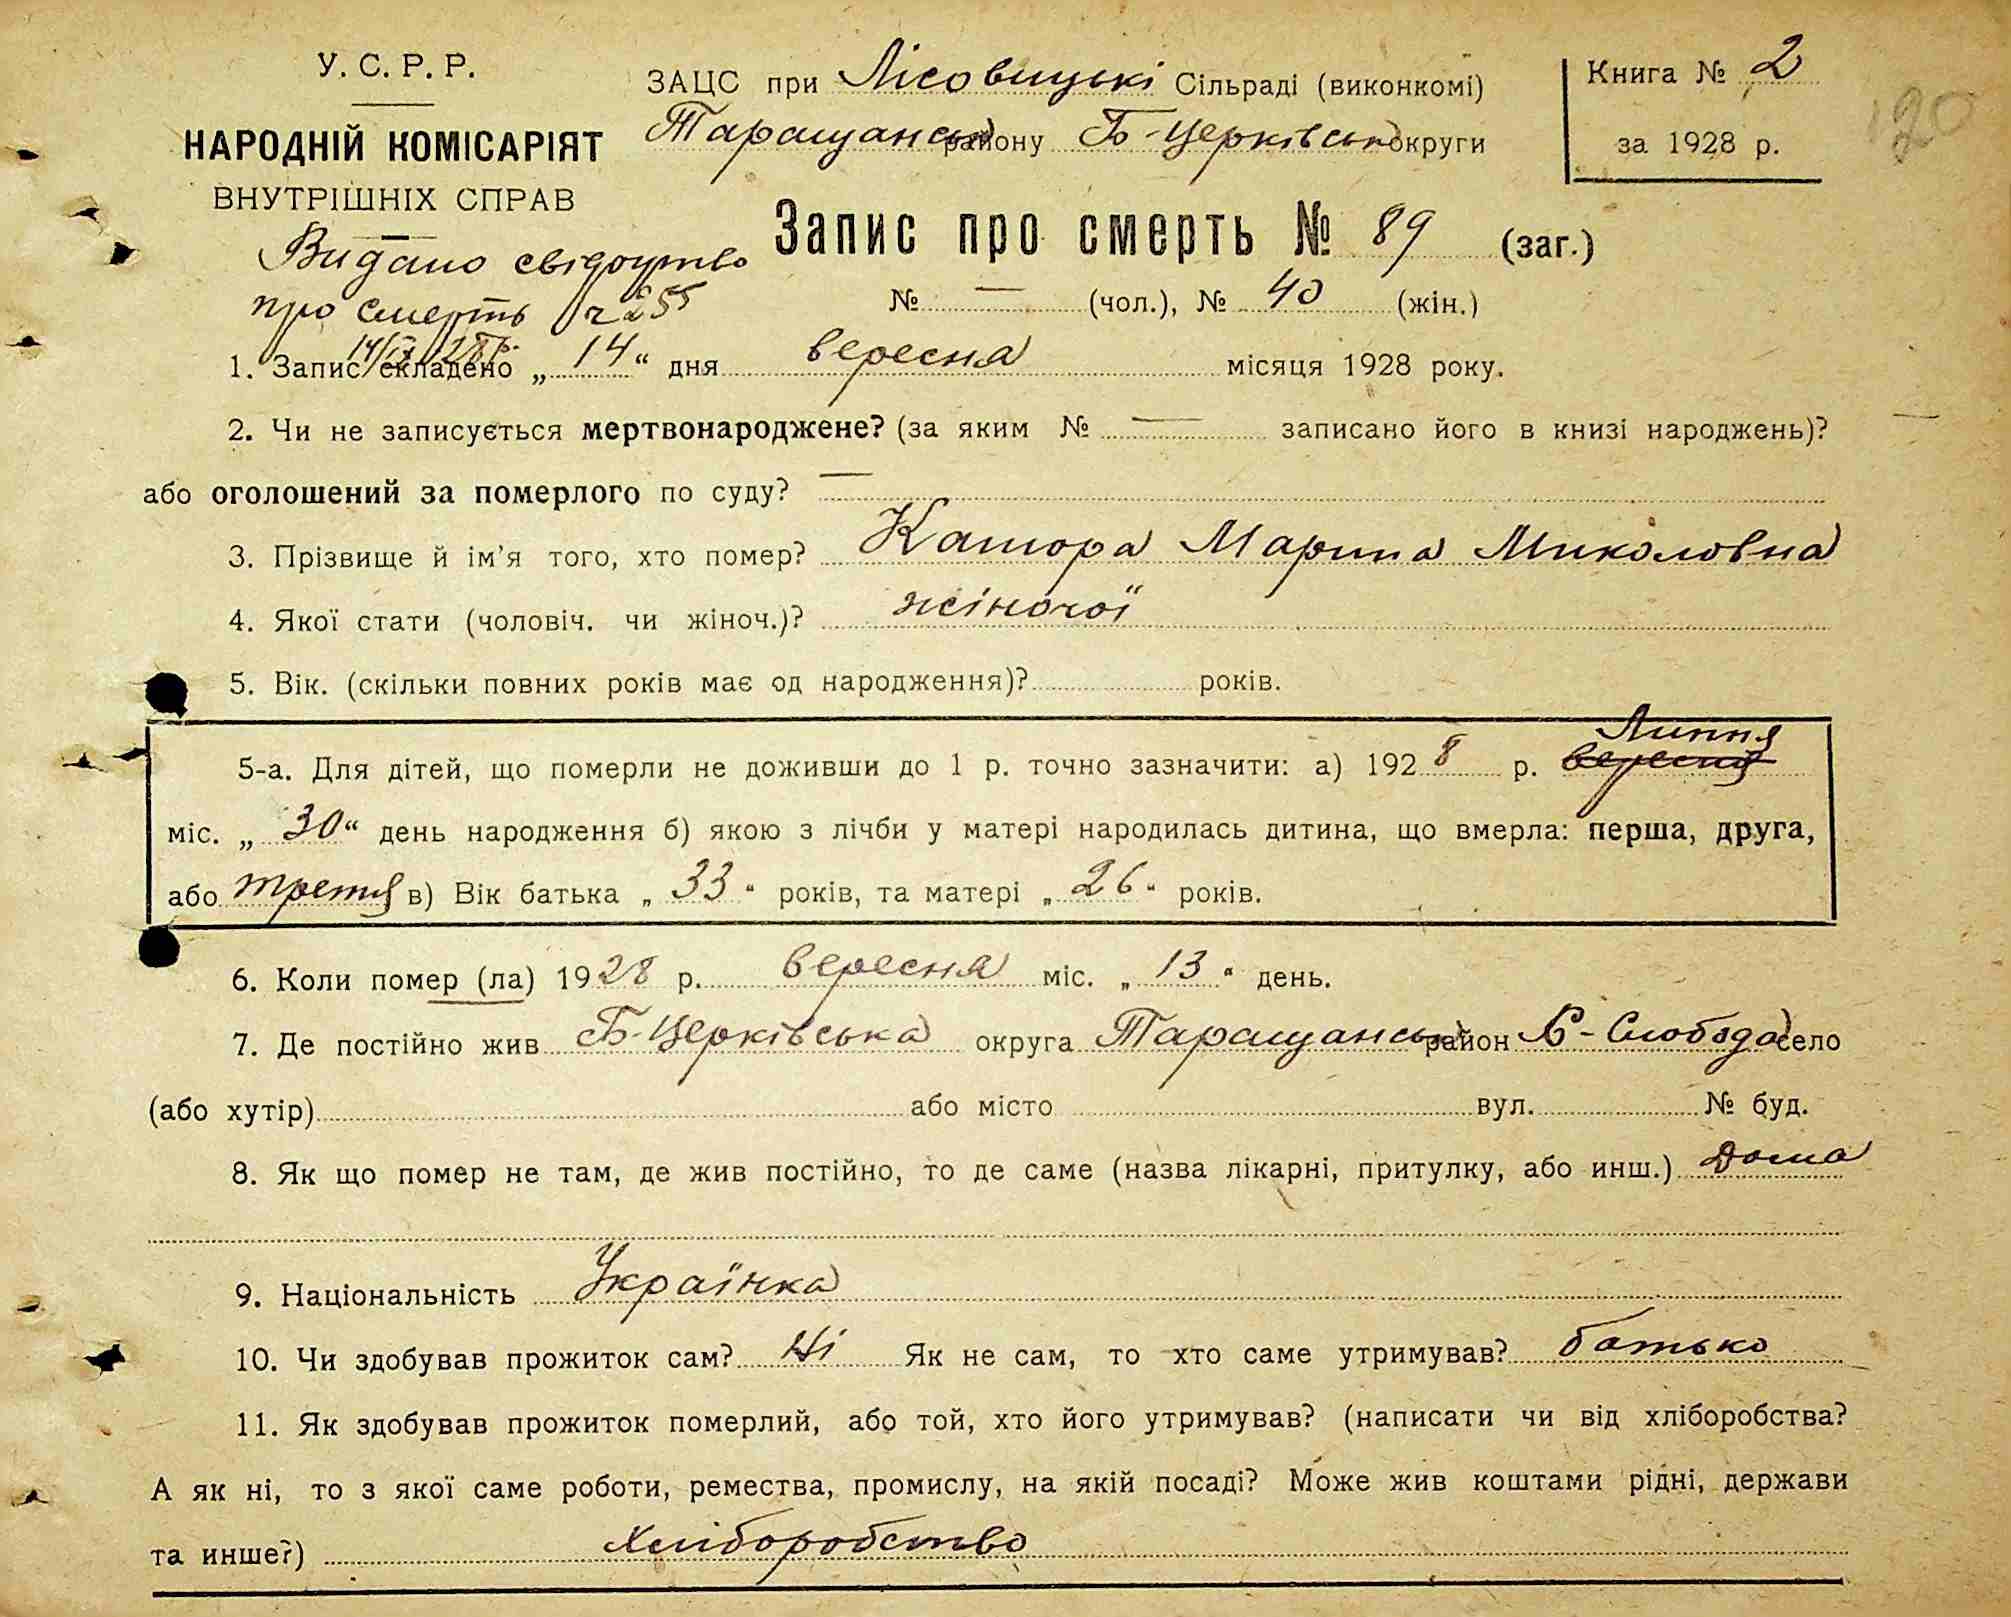 У. С. Р. Р.
НАРОДНІЙ КОМІСАРІЯТ
ВНУТРІШНІХ СПРАВ
ЗАЦС при Лісовицькі Сільраді (виконкомі)
Таращанськ району Б-Церківськ округи
Книга № 2
за 1928 р.
120
Запис про смерть № 89 (заг.)
Видано свідоцтво
про смерть ч 255
14/IX 28 р.
№ — (чол.), № 40 (жін.)
1. Запис складено „ 14 “ дня вересня місяця 1928 року.
2. Чи не записується мертвонароджене? (за яким № — записано його в книзі народжень)?
або оголошений за померлого по суду? —
3. Прізвище й ім’я того, хто помер? Качора Марина Миколовна
4. Якої стати (чоловіч. чи жіноч.)? жіночої
5. Вік. (скільки повних років має од народження)? років.
5-а. Для дітей, що померли не доживши до 1 р. точно зазначити: а) 1928 р. вересня Липня
міс. „ 30 “ день народження б) якою з лічби у матері народилась дитина, що вмерла: перша, друга,
або третя в) Вік батька „ 33 “ років, та матері „ 26 “ років.
6. Коли помер (ла) 1928 р. вересня міс. „ 13 “ день.
7. Де постійно жив Б-Церківська округа Таращанськ район -Слобода село
(або хутір) або місто вул. № буд.
8. Як що помер не там, де жив постійно, то де саме (назва лікарні, притулку, або инш.) Дома
9. Національність Українка
10. Чи здобував прожиток сам? Ні Як не сам, то хто саме утримував? батько
11. Як здобував прожиток померлий, або той, хто його утримував? (написати чи від хліборобства?
А як ні, то з якої саме роботи, ремества, промислу, на якій посаді? Може жив коштами рідні, держави
та инше?) Хліборобство